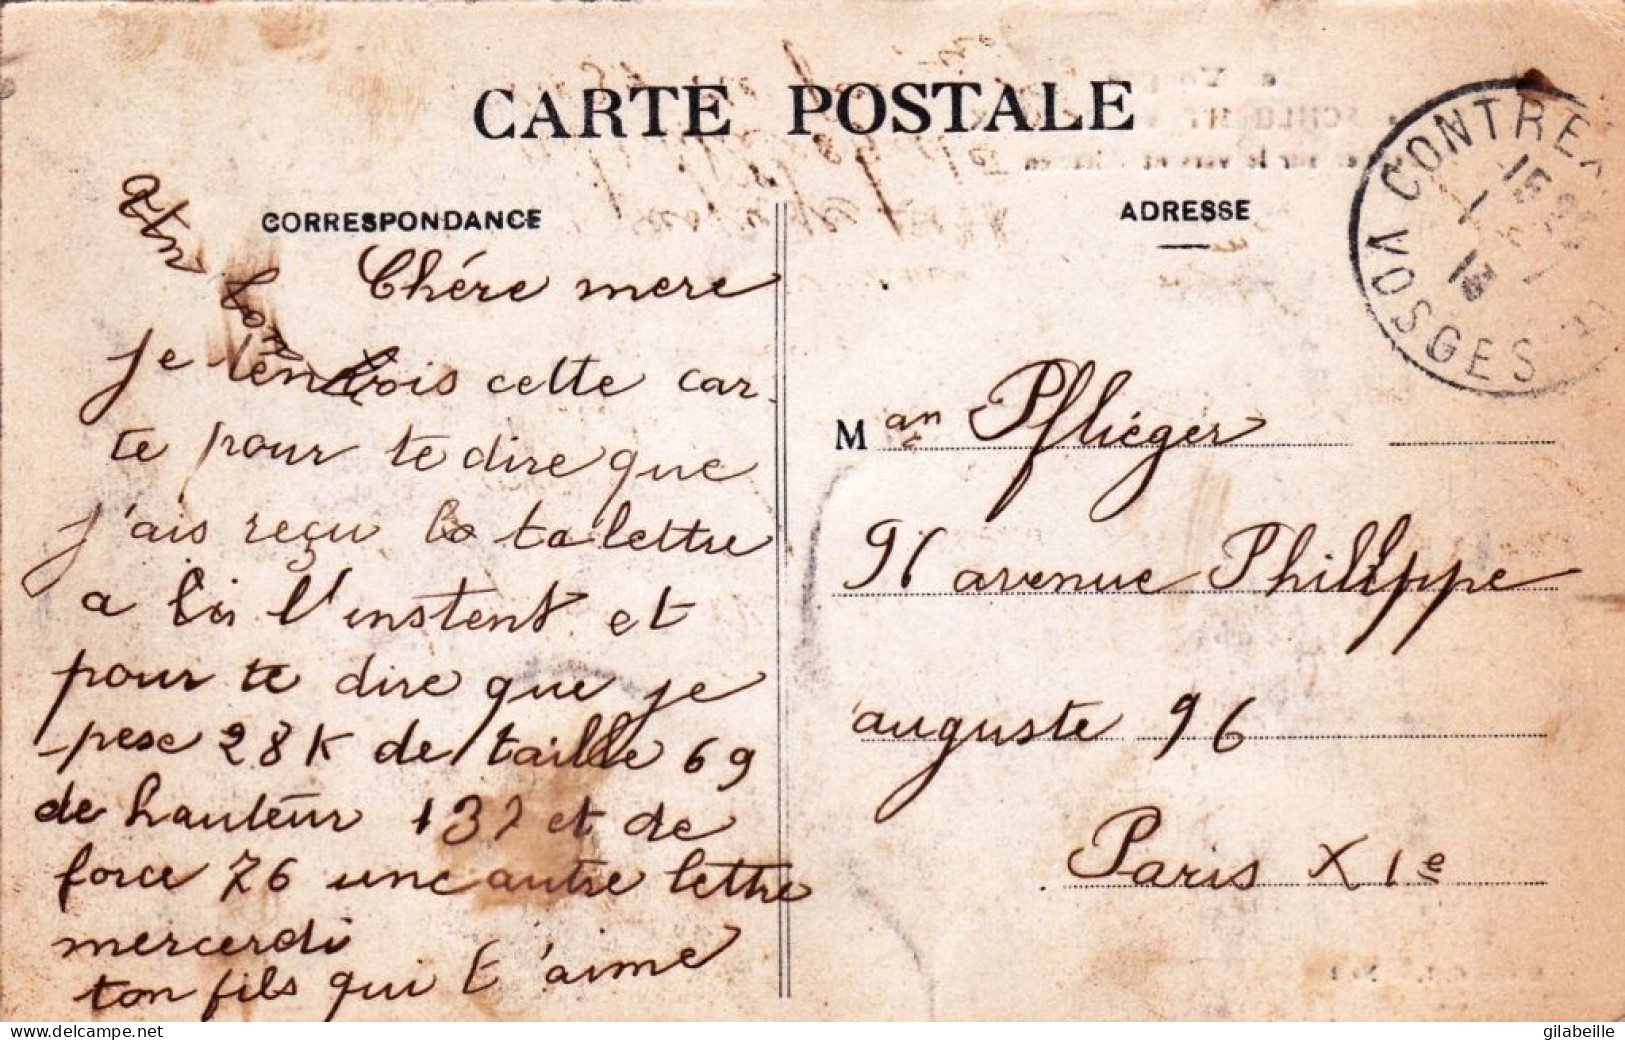 CARTE POSTALE
CORRESPONDANCE
ADRESSE
CONTREX
VOSGES
Chére mere
je t'envois cette car-
te pour te dire que
j'ais reçu ta lettre
a l'instent et
pour te dire que je
pese 28 K de taille 69
de hauteur 137 et de
force 26 une autre lettre
mercerdi
ton fils qui t'aime
M Pfliéger
96 avenue Philippe
auguste 96
Paris XIe
gilabeille